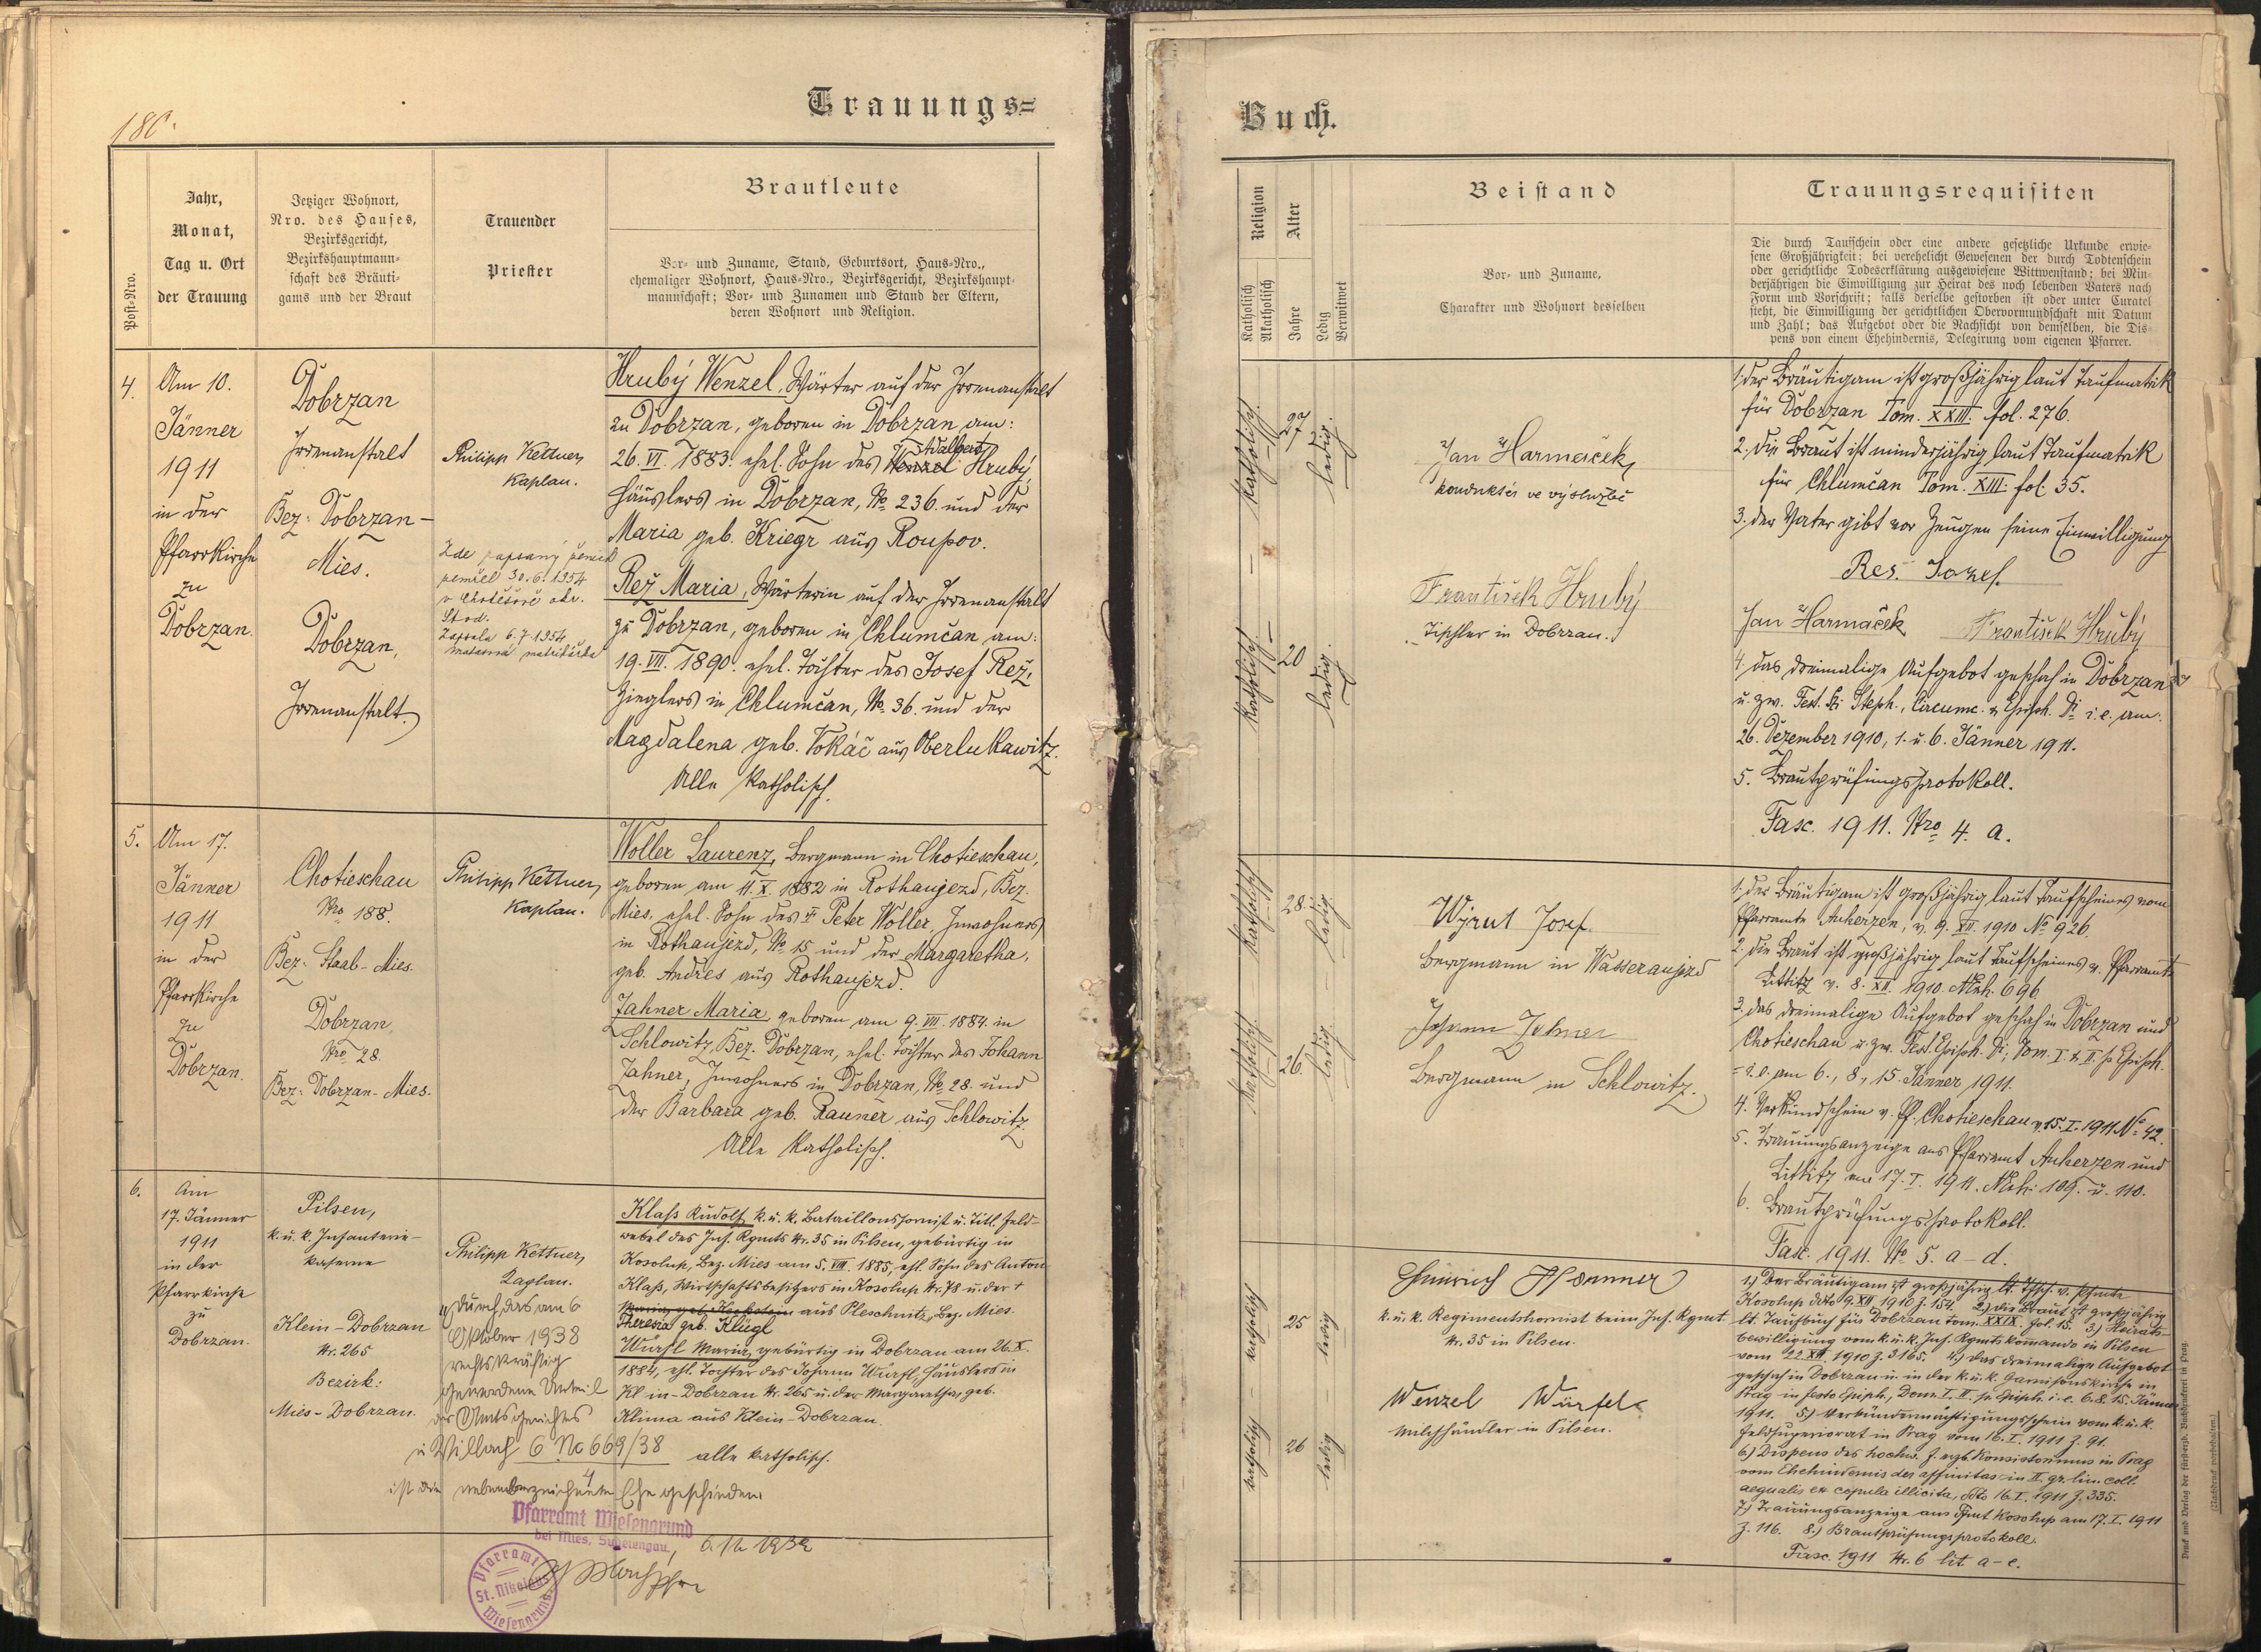 180.
Trauungs=
Post-Nro.
Jahr,
Monat,
Tag u. Ort
der Trauung
Jetziger Wohnort,
Nro. des Hauses,
Bezirksgericht,
Bezirkshauptmann-
schaft des Bräuti-
gams und der Braut
Trauender
Priester
Brautleute
Vor- und Zuname, Stand, Geburtsort, Haus-Nro.,
ehemaliger Wohnort, Haus-Nro., Bezirksgericht, Bezirkshaupt-
mannschaft; Vor- und Zunamen und Stand der Eltern,
deren Wohnort und Religion.
4.
Am 10.
Jänner
1911
in der
Pfarrkirche
zu
Dobrzan.
Dobrzan
Irrenanstalt
Bez: Dobrzan-
Mies.
Dobrzan,
Irrenanstalt
Philipp Kettner,
Kaplan.
Zde zapsaný ženich
zemřel 30.6.1954
v Chotěšově okr.
Stod.
Zapsala 6.7.1954
matrikářka
Hrubý Wenzel, Wärter auf der Irrenanstalt
zu Dobrzan, geboren in Dobrzan am:
26. VI. 1883. ehel. Sohn des Wenzel Adalbert Hrubý
Häuslers in Dobrzan, No 236. und der
Maria geb. Kriegr aus Roupov.
Rež Maria, Wärterin auf der Irrenanstalt
zu Dobrzan, geboren in Chlumčan am:
19. VII. 1890. ehel. Tochter des Josef Rež,
Zieglers in Chlumčan, No 36. und der
Magdalena geb. Tokáč aus Oberlukawitz.
Alle Katholisch.
5.
Am 17.
Jänner
1911
in der
Pfarrkirche
zu
Dobrzan.
Chotieschau
Nro 188.
Bez: Staab-Mies.
Dobrzan,
Nro 28.
Bez: Dobrzan-Mies.
Philipp Kettner,
Kaplan.
Woller Laurenz, Bergmann in Chotieschau,
geboren am 11. X. 1882 in Rothaujezd, Bez.
Mies, ehel. Sohn des Peter Woller, Inwohners
in Rothaujezd, No 15 und der Margaretha,
geb. Andres aus Rothaujezd.
Zahner Maria, geboren am 9. VIII. 1884. in
Schlowitz, Bez. Dobrzan, ehel. Tochter des Johann
Zahner, Inwohners in Dobrzan, No 28. und
der Barbara geb. Rauner aus Schlowitz.
Alle Katholisch.
6.
Am
17. Jänner
1911
in der
Pfarrkirche
zu
Dobrzan.
Pilsen,
k. u. k. Infanterie-
kaserne
Klein-Dobrzan
Nr. 265
Bezirk:
Mies-Dobrzan.
Philipp Kettner,
Kaplan.
Durch das am 6
Oktober 1938
rechtskräftig
gewordene Urteil
des Amtsgerichtes
in Villach 6 Nc 669/38
ist die nebenbezeichnete Ehe geschieden
Klaß Rudolf, k. u. k. Bataillonshornist u. Titl. Feld-
webel des Inf. Rgmts Nr. 35 in Pilsen, gebürtig in
Kosolup, Bez. Mies am 5. VIII. 1885, ehl. Sohn des Anton
Klaß, Wirtschaftsbesitzers in Kosolup Nr. 78 u. der †
Maria geb. aus Pleschnitz, Bez. Mies.
Theresia geb. Klügl
Würfl Maria, gebürtig in Dobrzan am 26. X.
1884, ehl. Tochter des Johann Würfl, Häuslers in
Klein-Dobrzan Nr. 265 u. der Margaretha, geb.
Klima aus Klein-Dobrzan.
alle katholisch.
Pfarramt Wiesengrund
bei Mies, Sudetengau.
Pfarramt
St. Nikolaus
Wiesengrund
Buch.
Religion
Katholisch
Akatholisch
Alter
Jahre
Ledig
Verwitwet
Beistand
Vor- und Zuname,
Charakter und Wohnort desselben
Trauungsrequisiten
Die durch Taufschein oder eine andere gesetzliche Urkunde erwie-
sene Großjährigkeit; bei verehelicht Gewesenen der durch Todtenschein
oder gerichtliche Todeserklärung ausgewiesene Wittwenstand; bei Min-
derjährigen die Einwilligung zur Heirat des noch lebenden Vaters nach
Form und Vorschrift; falls derselbe gestorben ist oder unter Curatel
steht, die Einwilligung der gerichtlichen Obervormundschaft mit Datum
und Zahl; das Aufgebot oder die Nachsicht von demselben, die Dis-
pens von einem Ehehindernis, Delegirung vom eigenen Pfarrer.
Katholisch
27
ledig.
Katholisch
20
ledig.
Jan Harmáček,
konduktér ve výslužbě
František Hrubý
Tischler in Dobrzan.
1. der Bräutigam ist großjährig laut Taufmatrik
für Dobrzan Tom. XXIII. fol. 276.
2. die Braut ist minderjährig laut Taufmatrik
für Chlumčan Tom. XIII. fol. 35.
3. der Vater gibt vor Zeugen seine Einwilligung
Res. Jozef.
Jan Harmáček František Hrubý
4. das dreimalige Aufgebot geschah in Dobrzan
u. zw. Fest. Sti Steph., Circumc. & Epiph. Di i. e. am:
26. Dezember 1910, 1. u. 6. Jänner 1911.
5. Brautprüfungsprotokoll.
Fasc. 1911. Nro 4. a.
Katholisch
28.
ledig.
Katholisch
26.
ledig.
Josef.
Bergmann in Wasseraujezd
Johann Zahner
Bergmann in Schlowitz.
1. der Bräutigam ist großjährig laut Taufscheines vom
Pfarramte Auherzen, v. 9. XII. 1910 No 926.
2. die Braut ist großjährig laut Taufscheines v. Pfarramte
Littitz v. 8. XII. 1910. 696.
3. das dreimalige Aufgebot geschah in Dobrzan und
Chotieschau u. zw. Fest. Epiph. Di; Dom. I. & II. p. Epiph.
= i. e. am 6., 8., 15. Jänner 1911.
4. Verkündschein v. Pf. Chotieschau v. 15. I. 1911 No 42.
5. Trauungsanzeige ans Pfarramt Auherzen und
Littitz am 17. I. 1911. 109. u. 110.
6. Brautprüfungsprotokoll.
Fasc. 1911. No 5. a-d.
katholisch
25
ledig
katholisch
26
ledig
Heinrich
k. u. k. Regimentshornist beim Inf. Rgmt.
Nr. 35 in Pilsen.
Wenzel Würfel
Milchhändler in Pilsen.
1.) Der Bräutigam ist großjährig lt. Tfsch. v. Pfmte
Kosolup ddto 9. XII 1910 Z. 154. 2.) Die Braut ist großjährig
lt. Taufbuch für Dobrzan tom. XXIX. fol. 15. 3.) Heirats-
bewilligung vom k. u. k. Inf. Rgmtskommando in Pilsen
vom 22. XII. 1910 Z. 3165. 4.) Das dreimalige Aufgebot
geschah in Dobrzan u. in der k. u. k. Garnisonskirche in
Prag in festo Epiph., Dom. I. II. p. Epiph. i. e. 6. 8. 15. Jänner
1911. 5.) Verkündermächtigungsschein vom k. u. k.
Feldsuperiorat in Prag vom 16. I. 1911 Z. 91.
6.) Dispens des hochw. f. erzb. Konsistoriums in Prag
vom Ehehindernis der affinitas in II. gr. lin. coll.
aequalis ex copula illicita, ddto 16. I. 1911 Z. 335.
7.) Trauungsanzeige ans Pfmt Kosolup am 17. I. 1911
Z. 116. 8.) Brautprüfungsprotokoll.
Fasc. 1911 Nr. 6 lit. a-e.
Druck und Verlag der fürsterzb. Buchdruckerei in Prag.
(Nachdruck vorbehalten.)